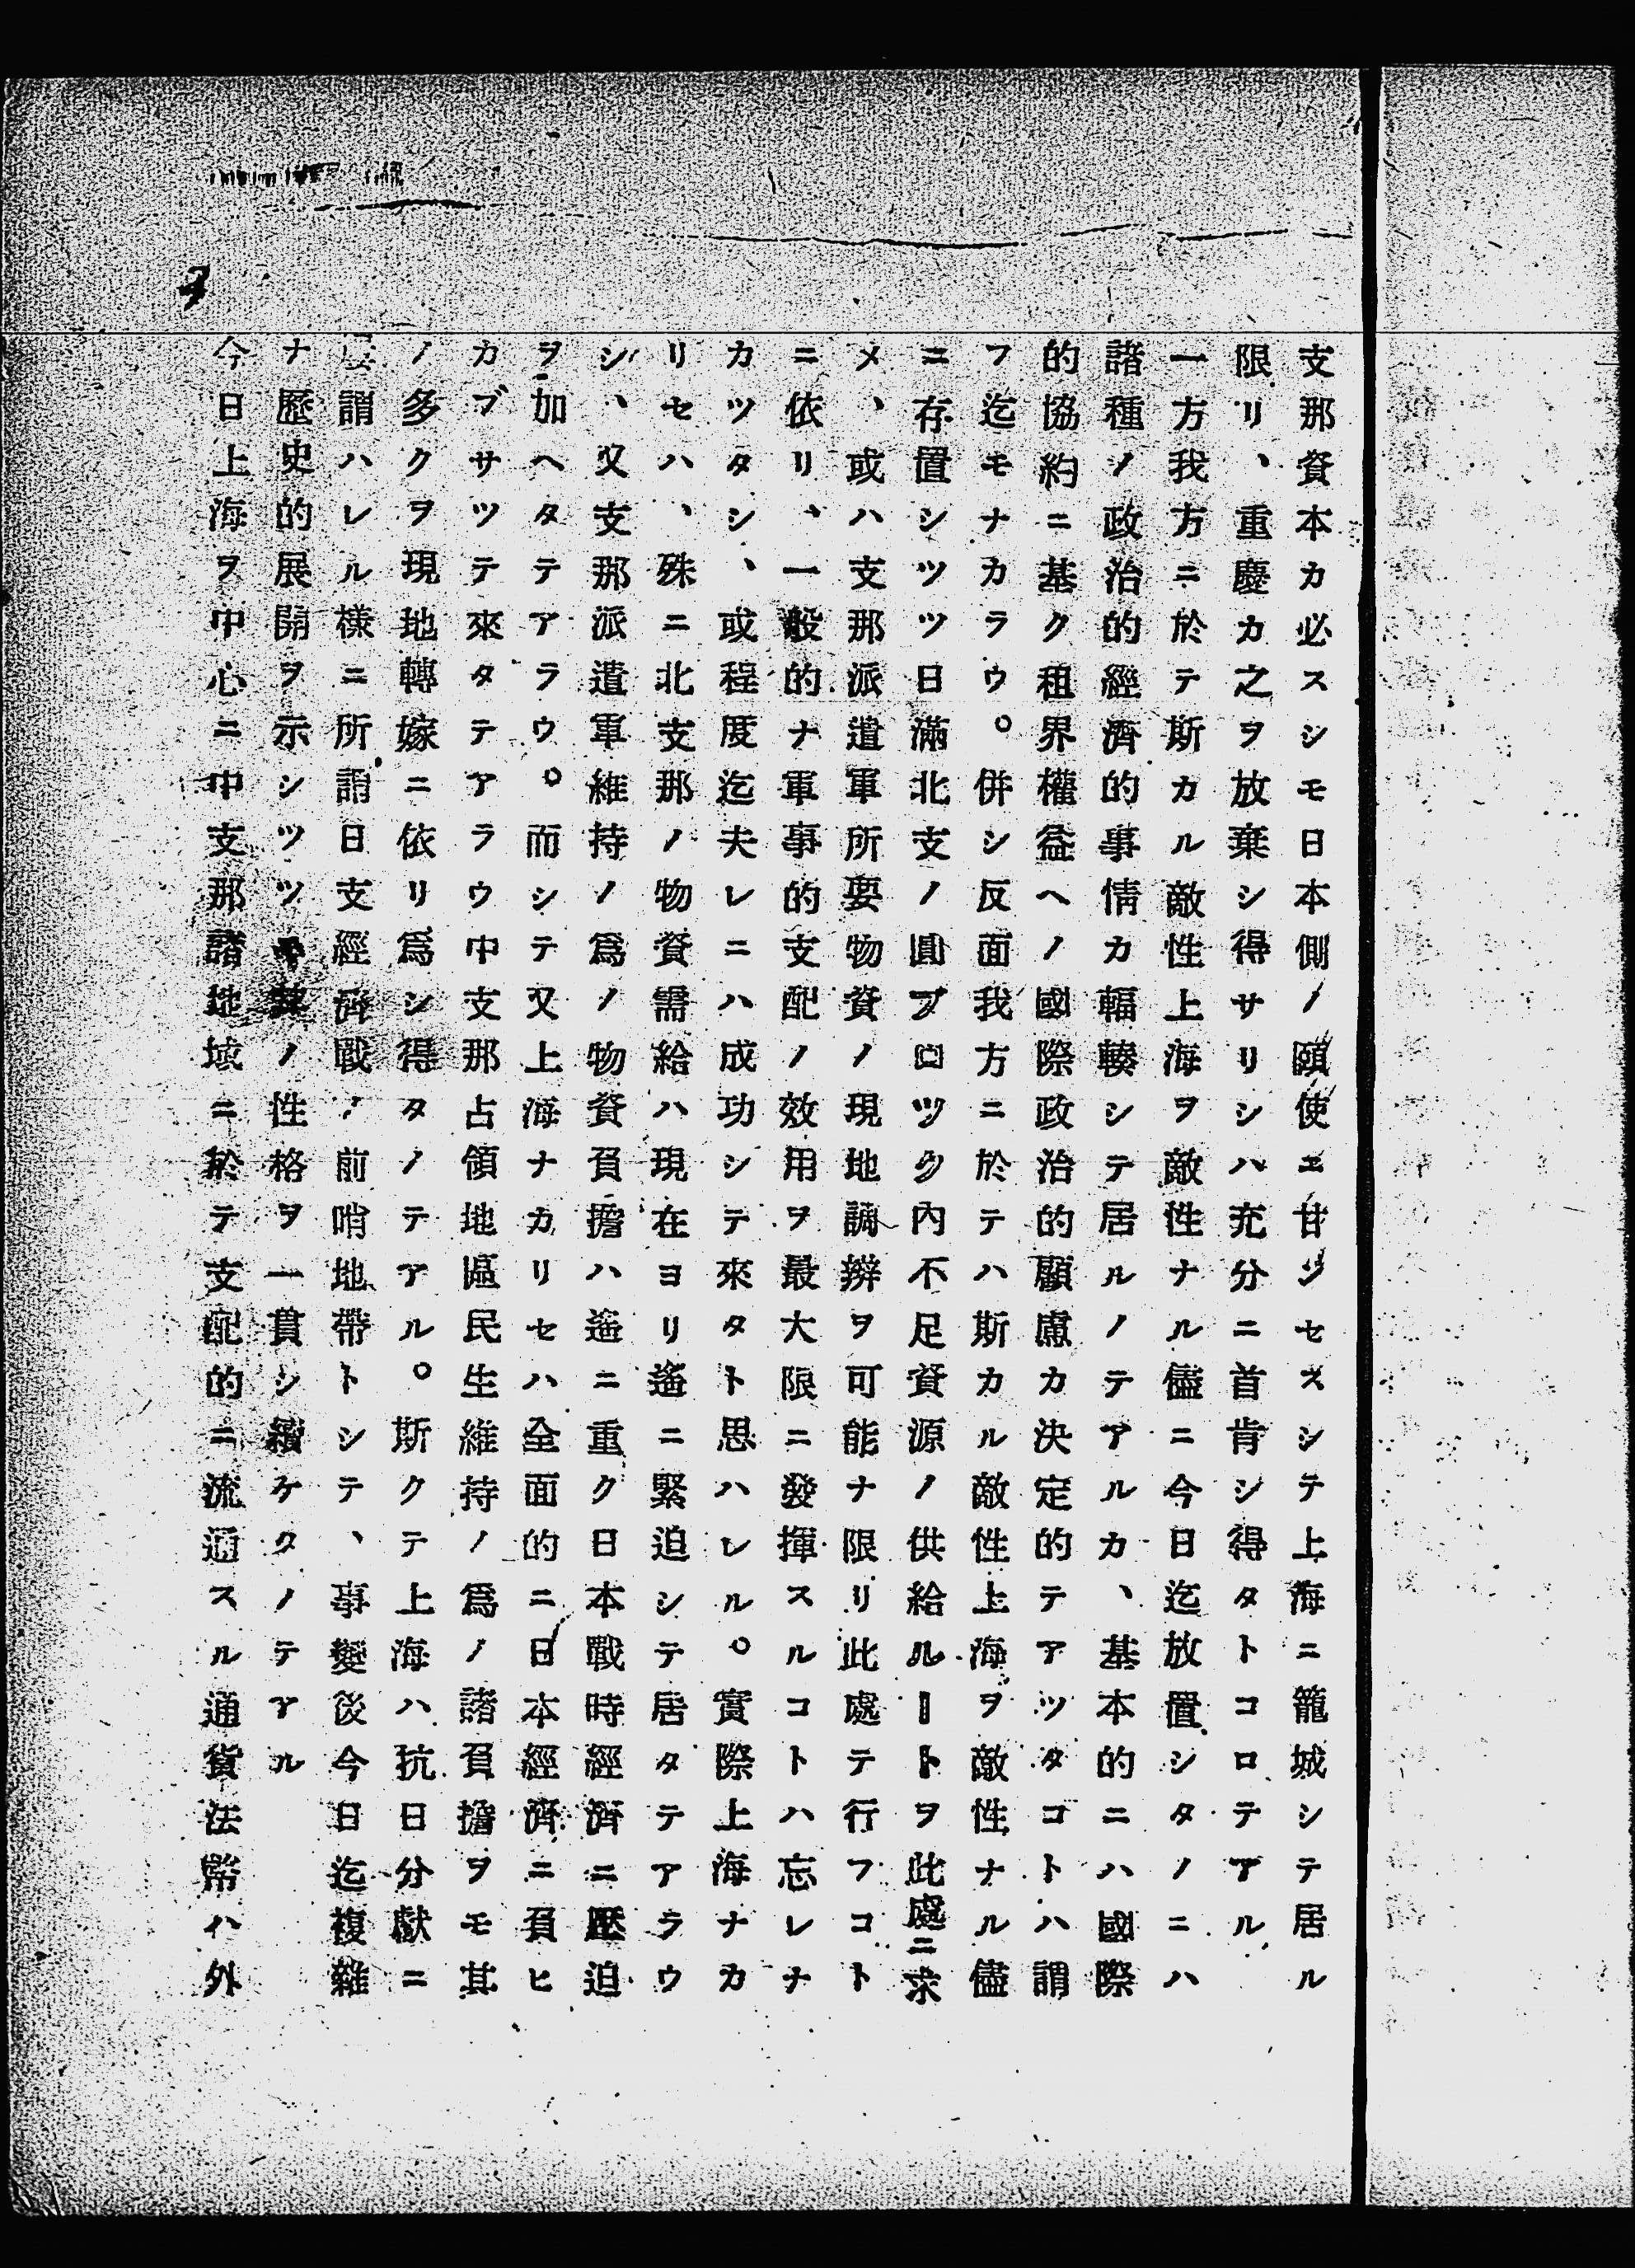 支那資本カ必スシモ日本側ノ頤使ニ甘ジセスシテ上海ニ籠城シテ居ル
限リ、重慶カ之ヲ放棄シ得サリシハ充分ニ首肯シ得タトコロテアル
一方我方ニ於テ斯カル敵性上海ヲ敵性ナル儘ニ今日迄放置シタノニハ
諸種ノ政治的經濟的事情カ輻輳シテ居ルノテアルカ、基本的ニハ國際
的協約ニ基ク租界權益ヘノ國際政治的顧慮カ決定的テアツタコトハ謂
フ迄モナカラウ。併シ反面我方ニ於テハ斯カル敵性上海ヲ敵性ナル儘
ニ存置シツツ日滿北支ノ圓ブロツク內不足資源ノ供給ルートヲ此處ニ求
メ、或ハ支那派遣軍所要物資ノ現地調辨ヲ可能ナ限リ此處テ行フコト
ニ依リ、一般的ナ軍事的支配ノ效用ヲ最大限ニ發揮スルコトハ忘レナ
カツタシ、或程度迄夫レニハ成功シテ來タト思ハレル。實際上海ナカ
リセハ、殊ニ北支那ノ物資需給ハ現在ヨリ遙ニ緊迫シテ居タテアラウ
シ、又支那派遣軍維持ノ爲ノ物資負擔ハ遙ニ重ク日本戰時經濟ニ壓迫
ヲ加ヘタテアラウ。而シテ又上海ナカリセハ全面的ニ日本經濟ニ負ヒ
カブサツテ來タテアラウ中支那占領地區民生維持ノ爲ノ諸負擔ヲモ其
ノ多クヲ現地轉嫁ニ依リ爲シ得タノテアル。斯クテ上海ハ抗日分獻ニ
謂ハレル樣ニ所謂日支經濟戰ノ前哨地帶トシテ、事變後今日迄複雜
ナ歷史的展開ヲ示シツツ其ノ性格ヲ一貫シ續ケタノテアル
今日上海ヲ中心ニ中支那諸地域ニ於テ支配的ニ流通スル通貨法幣ハ外